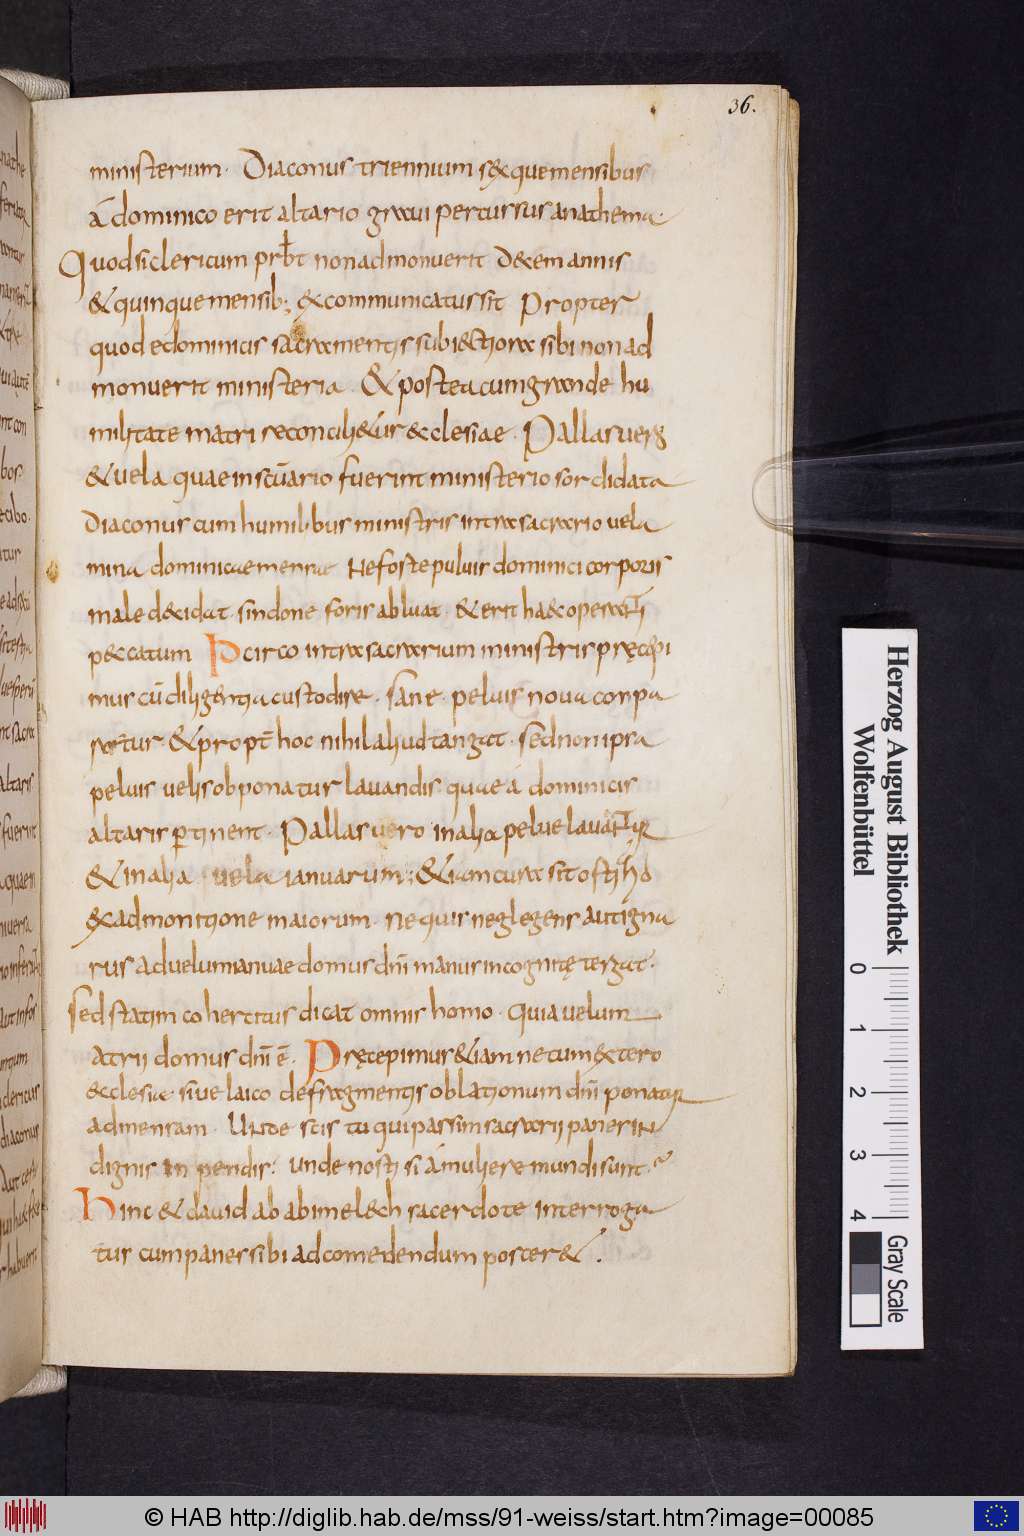 36.
ministerium· Diaconus triennium s&quemensibus
á dominico erit altario gravi percussus anathema·
Quodsiclericum prbt nonadmonuerit D&em annis
&quinquemensib; excommunicatussit Propter
quod edominicis sacramentis subi&tiora sibi nonad
monuerit ministeria. &posteacumgrande hu
militate matri reconcili&ur &clesiae· Pallasuero
&uela quaeinscuario fuerint ministerio sordidata
Diaconus cum humilibus ministris intrasacrario uela
mina dominicaemensae Neforte puluis dominici corporis
male d&idat· sindone foris abluat· &erit ha&
p&catum Pcirco intrasacrarium ministris pręcepi
mus cū diligentia custodire· sane peluis noua conpa
r&ur &propt hoc nihil aliud tangat· sednonipsa
peluis uelisobponatur lauandis quae á dominicis
altaris ptinent· Pallasuero inalia pelue lauantur
&inalia uela ianuarum; &iamcura sit ostiha
exadmonitione maiorum· nequis neglegens autigna
rus aduelumianuaedomus dnī manus incognitę tergat·
sed statim cohercitus dicat omnis homo· quia uelum
atrii domus dnī ē· Pręcepimus &iam necumextero
&clesiae siue laico defragmentis oblationum dnī ponatur
admensam· Unde scis tu quipassim sacrarii panes in
dignis inpendis: unde nosti si ámuliere mundi sunt·
hinc &dauid ab abimel&h sacerdote interroga
tur cumpanes sibi adcomedendum posceret·
Herzog August Bibliothek
Wolfenbüttel
0 1 2 3 4
Gray Scale
© HAB http://diglib.hab.de/mss/91-weiss/start.htm?image=00085